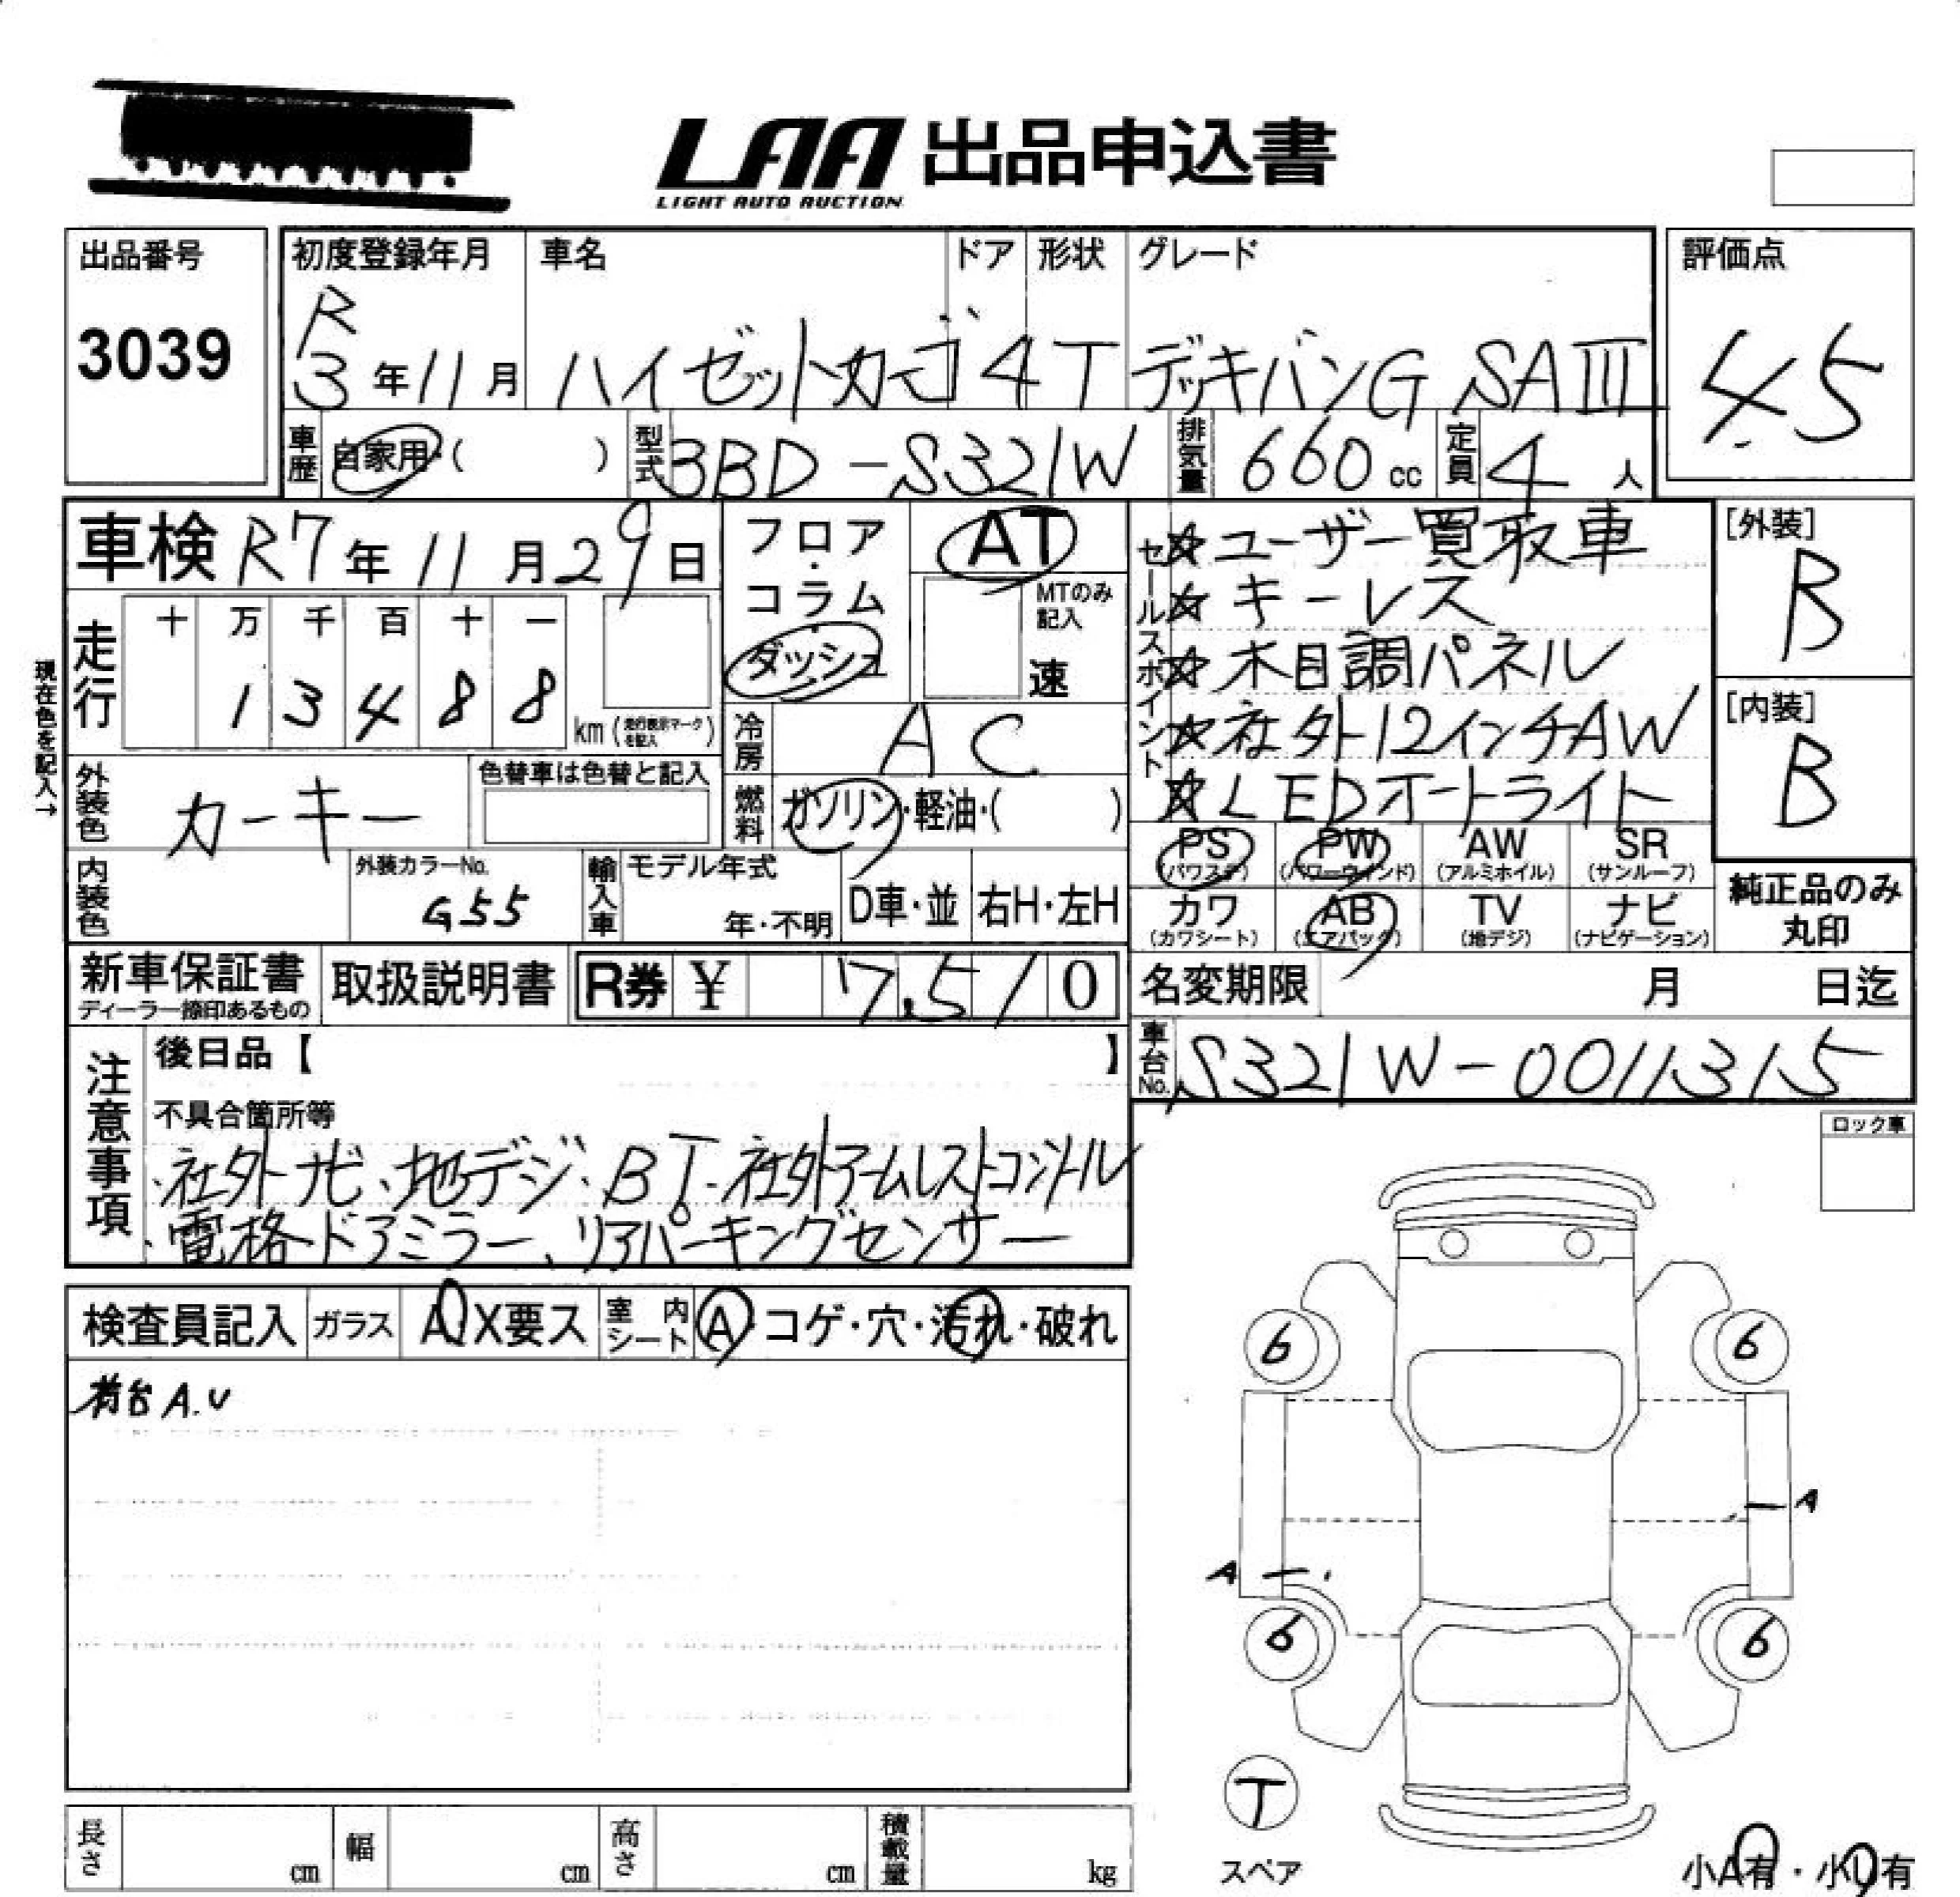 LAA 出品申込書
LIGHT AUTO AUCTION
出品番号
3039
初度登録年月
R
3年11月
車名
ハイゼットカーゴ
ドア
4
形状
T
グレード
デッキバンG SAⅢ
評価点
4.5
車歴
自家用・( )
型式
3BD-S321W
排気量
660cc
定員
4人
車検 R7年11月29日
フロア・コラム・ダッシュ
AT
MTのみ記入
速
走行
十 万 千 百 十 一
1 3 4 8 8
km(走行表示マークを記入)
現在色を記入→
冷房
AC
燃料
ガソリン・軽油・( )
外装色
カーキー
色替車は色替と記入
内装色
外装カラーNo.
G55
輸入車
モデル年式
年・不明
D車・並
右H・左H
セールスポイント
☆ユーザー買取車
☆キーレス
☆木目調パネル
☆社外12インチAW
☆LEDオートライト
[外装]
B
[内装]
B
PS (パワステ)
PW (パワーウインド)
AW (アルミホイル)
SR (サンルーフ)
カワ (カワシート)
AB (エアバック)
TV (地デジ)
ナビ (ナビゲーション)
純正品のみ
丸印
新車保証書
ディーラー捺印あるもの
取扱説明書
R券 ¥ 7.510
名変期限 月 日迄
車台No.
S321W-0011315
注意事項
後日品【 】
不具合箇所等
・社外ナビ、地デジ、BT・社外アームレストコンソール
・電格ドアミラー、リアパーキングセンサー
ロック車
検査員記入
ガラス
A・X要ス
室内シート
A・コゲ・穴・汚れ・破れ
荷台A.U
6 6
A
A
6 6
T
スペア
小A有・小U有
長さ cm
幅 cm
高さ cm
積載量 kg